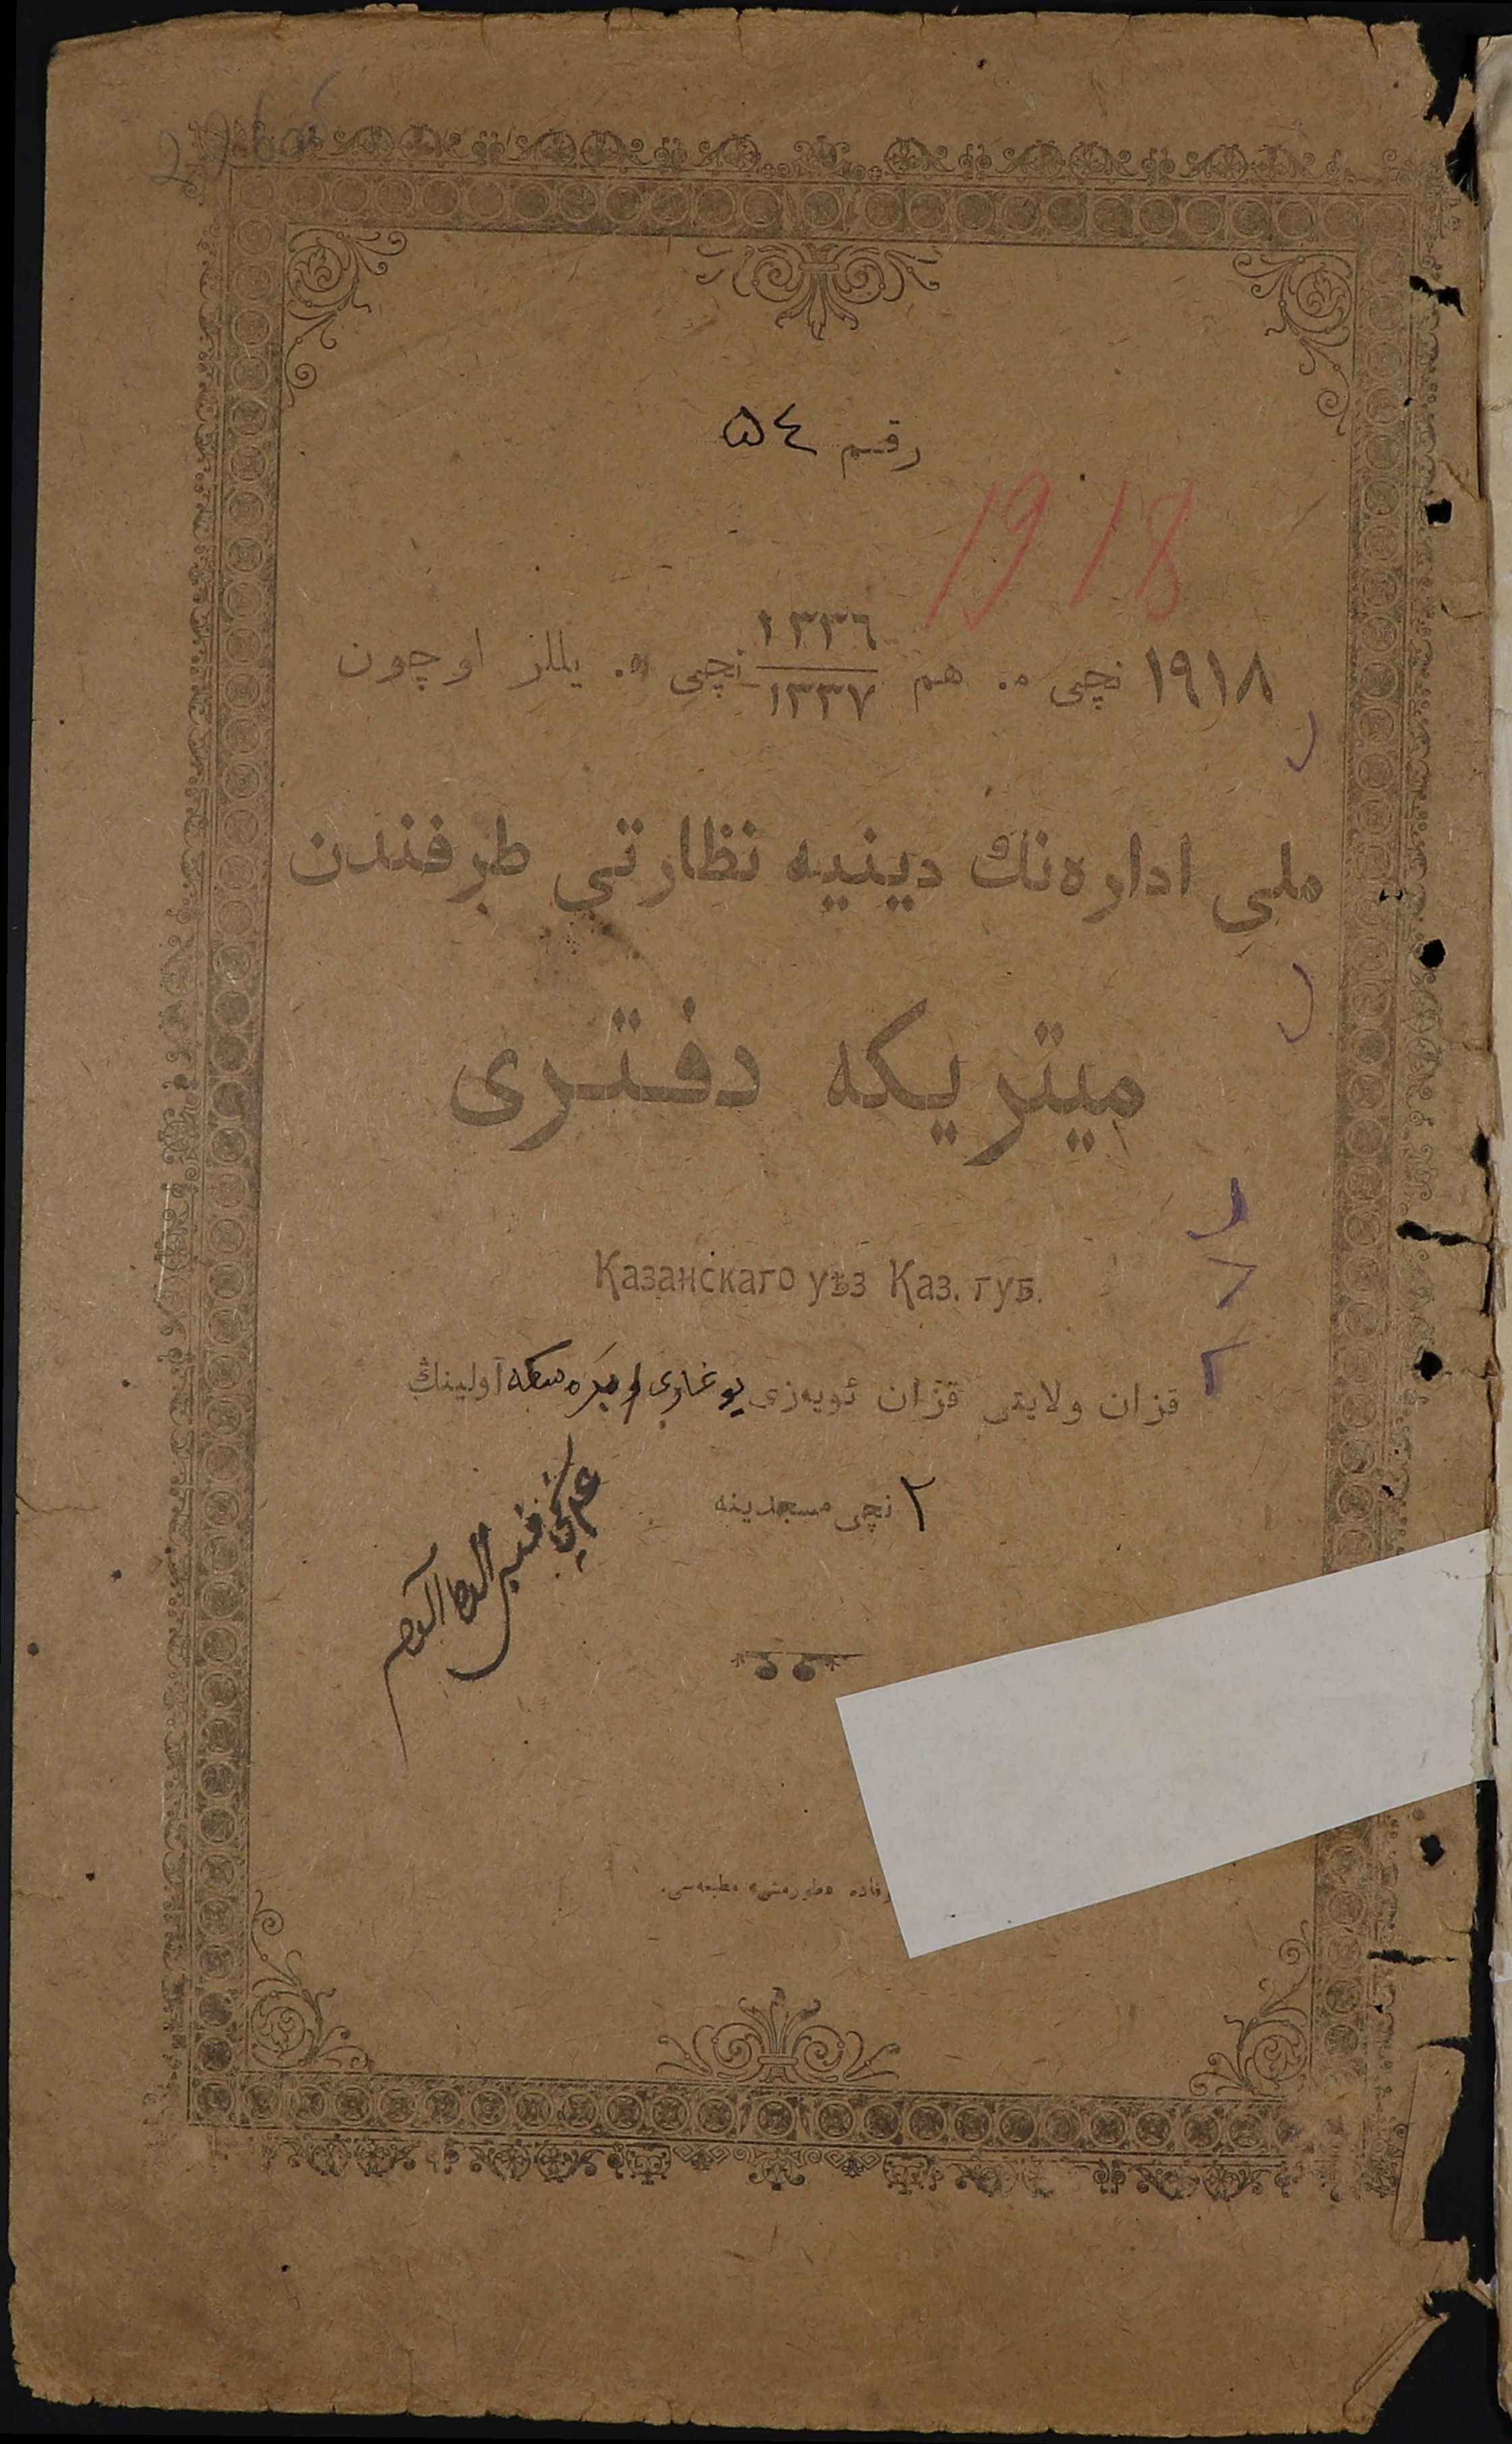 رقم ٥٤
1918
١٩١٨ نچی هم ١٣٣٦/١٣٣٧ نچی یللر اوچون
ملی اداره‌نك دینیه نظارتی طرفندن
میتریکه دفتری
Казанскаго уѣз Каз. губ.
قزان ولایتی قزان ئویه‌زی یوغاری آولینڭ
٢ نچی مسجدینه
مطبعه‌سی.